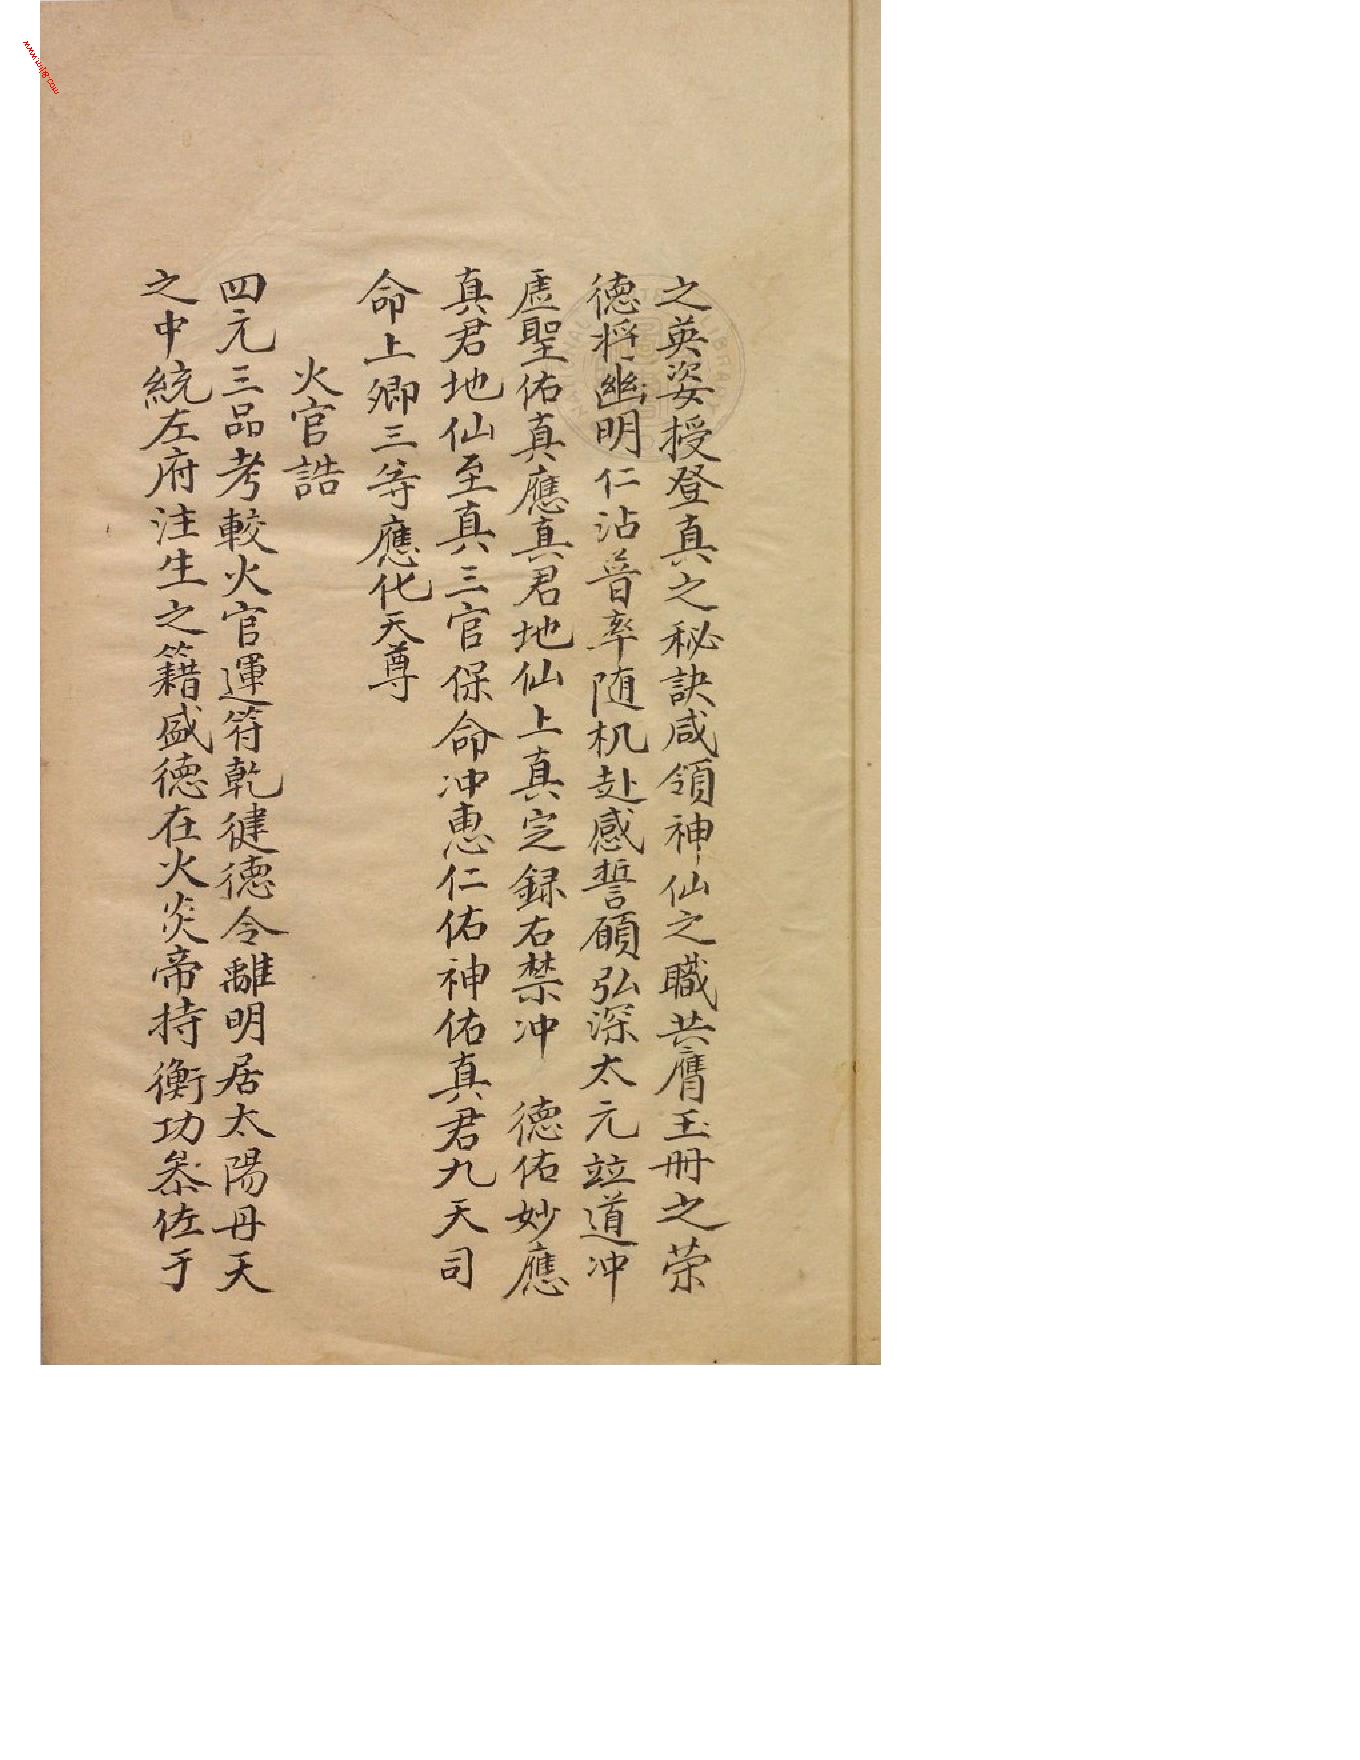 之英姿授登真之秘訣咸領神仙之職共膺玉冊之荣
德将幽明仁沾普率随机赴感誓願弘深太元竝道冲
虛聖佑真應真君地仙上真定録右禁冲　德佑妙應
真君地仙至真三官保命冲惠仁佑神佑真君九天司
命上卿三等應化天尊
火官誥
四元三品考較火官運符乾健德令離明居太陽丹天
之中統左府注生之籍盛德在火炎帝持衡功叅佐于